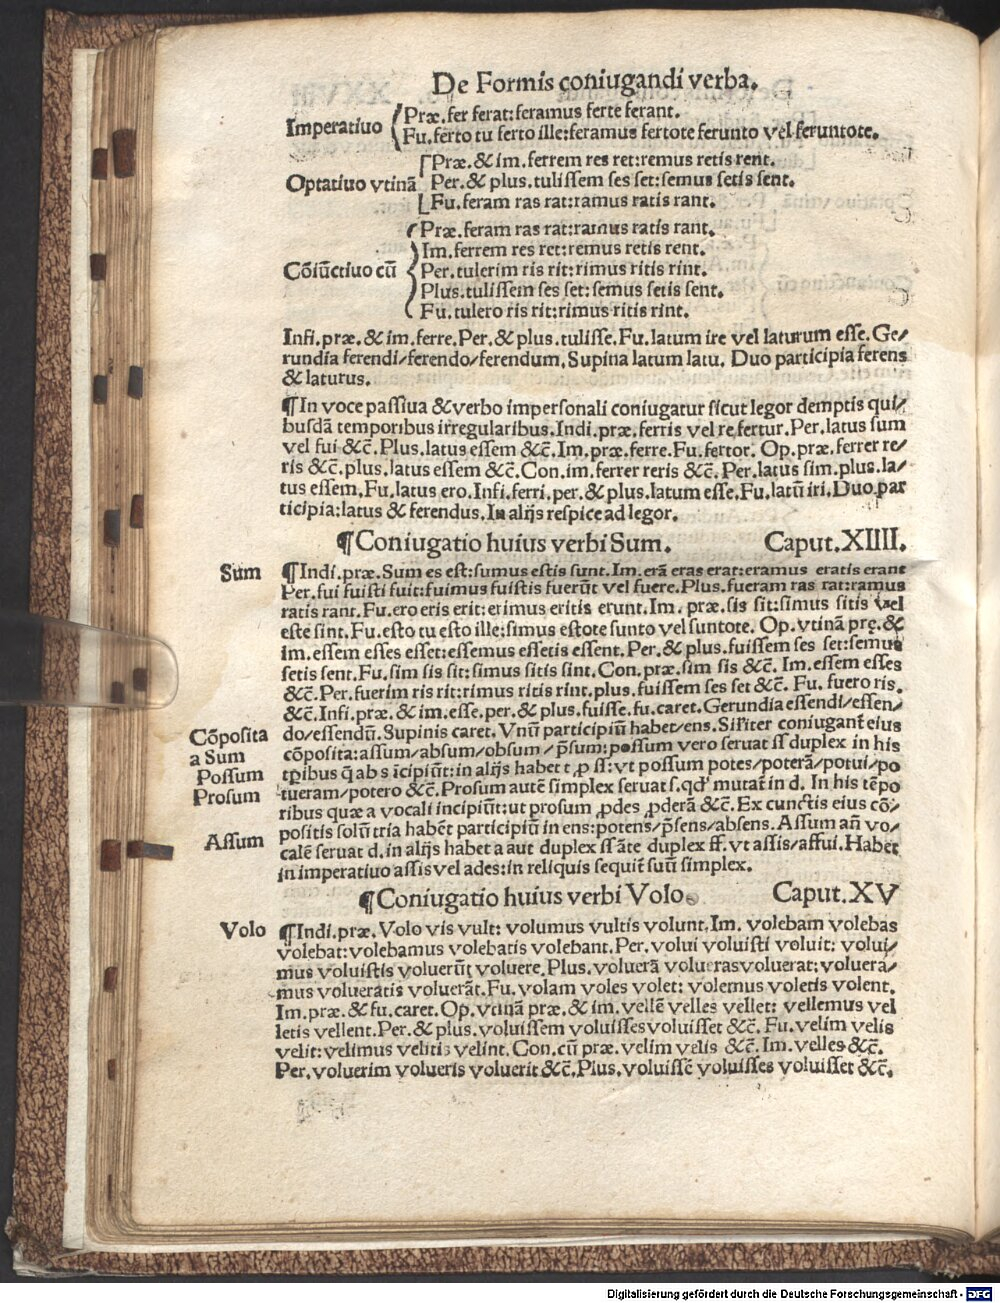 De Formis coniugandi verba.
Imperatiuo
Præ. fer ferat: feramus ferte ferant.
Fu. ferto tu ferto ille: feramus fertote ferunto vel feruntote.
Optatiuo vtinã
Præ. & im. ferrem res ret: remus retis rent.
Per. & plus. tulissem ses set: semus setis sent.
Fu. feram ras rat: ramus ratis rant.
Cõiũctiuo cũ
Præ. feram ras rat: ramus ratis rant.
Im. ferrem res ret: remus retis rent.
Per. tulerim ris rit: rimus ritis rint.
Plus. tulissem ses set: semus setis sent.
Fu. tulero ris rit: rimus ritis rint.
Infi. præ. & im. ferre. Per. & plus. tulisse. Fu. latum ire vel laturum esse. Ge/
rundia ferendi/ferendo/ferendum. Supina latum latu. Duo participia ferens
& laturus.
¶In voce passiua & verbo impersonali coniugatur sicut legor demptis qui/
busdã temporibus irregularibus. Indi. præ. ferris vel re fertur. Per. latus sum
vel fui &c̃. Plus. latus essem &c̃. Im. præ. ferre. Fu. fertor. Op. præ. ferrer re/
ris &c̃. plus. latus essem &c̃. Con. im. ferrer reris &c̃. Per. latus sim. plus. la/
tus essem. Fu. latus ero. Infi. ferri. per. & plus. latum esse. Fu. latũ iri. Duo par
ticipia: latus & ferendus. In alijs respice ad legor.
¶Coniugatio huius verbi Sum. Caput. XIIII.
Sum
¶Indi. præ. Sum es est: sumus estis sunt. Im. erã eras erat: eramus eratis erant
Per. fui fuisti fuit: fuimus fuistis fuerũt vel fuere. Plus. fueram ras rat: ramus
ratis rant. Fu. ero eris erit: erimus eritis erunt. Im. præ. sis sit: simus sitis vel
este sint. Fu. esto tu esto ille: simus estote sunto vel suntote. Op. vtinã pre. &
im. essem esses esset: essemus essetis essent. Per. & plus. fuissem ses set: semus
setis sent. Fu. sim sis sit: simus sitis sint. Con. præ. sim sis &c̃. Im. essem esses
&c̃. Per. fuerim ris rit: rimus ritis rint. plus. fuissem ses set &c̃. Fu. fuero ris.
&c̃. Infi. præ. & im. esse. per. & plus. fuisse. fu. caret. Gerundia essendi/essen/
do/essendũ. Supinis caret. Vnũ participiũ habet/ens. coniugant̃ eius
Cõposita
a Sum
Possum
Prosum
cõposita: assum/absum/obsum/p̃sum: possum vero seruat ss duplex in his
tp̃ibus q̃ ab s ĩcipiũt: in alijs habet t ꝓ ss: vt possum potes/poterã/potui/po
tueram/potero &c̃. Prosum autẽ simplex seruat s. mutat̃ in d. In his tẽpo
ribus quæ a vocali incipiũt: ut prosum ꝓdes ꝓderã &c̃. Ex cunctis eius cõ/
Assum
positis solũ tria habẽt participiũ in ens: potens/p̃sens/absens. Assum añ vo/
calẽ seruat d. in alijs habet a aut duplex ss ãte duplex ff. vt assis/affui. Habet
in imperatiuo assis vel ades: in reliquis sequit̃ suũ simplex.
¶Coniugatio huius verbi Volo. Caput. XV
Volo
¶Indi. præ. Volo vis vult: volumus vultis volunt. Im. volebam volebas
volebat: volebamus volebatis volebant. Per. volui voluisti voluit: volui/
mus voluistis voluerũt voluere. Plus. voluerã volueras voluerat: voluera/
mus volueratis voluerãt. Fu. volam voles volet: volemus voletis volent.
Im. præ. & fu. caret. Op. vtinã præ. & im. vellẽ velles vellet: vellemus vel
letis vellent. Per. & plus. voluissem voluisses voluisset &c̃. Fu. velim velis
velit: velimus velitis velint. Con. cũ præ. velim velis &c̃. Im. velles &c̃.
Per. voluerim volueris voluerit &c̃. Plus. voluissẽ voluisses voluisset &c̃.
Digitalisierung gefördert durch die Deutsche Forschungsgemeinschaft - DFG